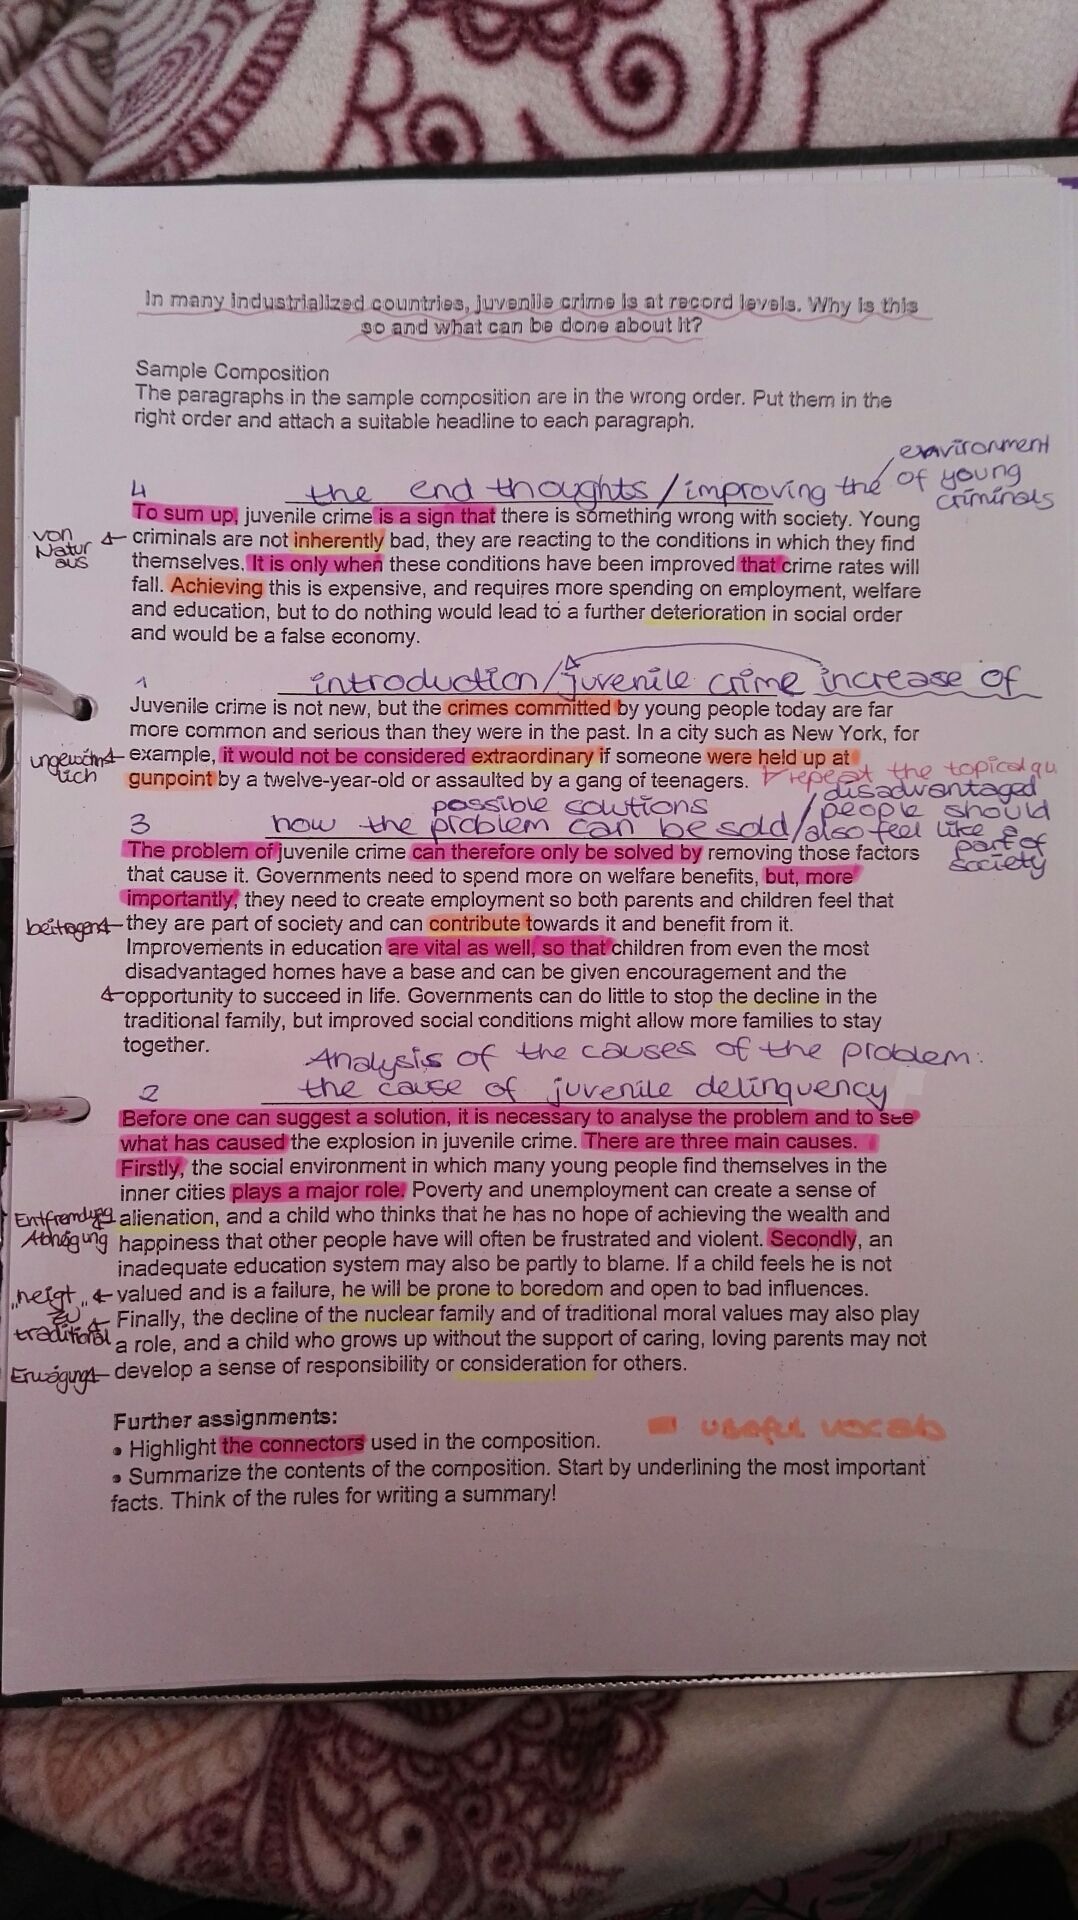 In many industrialized countries, juvenile crime is at record levels. Why is this
so and what can be done about it?
Sample Composition
The paragraphs in the sample composition are in the wrong order. Put them in the
right order and attach a suitable headline to each paragraph.
environment
4 the end thoughts / improving the of young
criminals
To sum up, juvenile crime is a sign that there is something wrong with society. Young
von
Natur
aus
criminals are not inherently bad, they are reacting to the conditions in which they find
themselves. It is only when these conditions have been improved that crime rates will
fall. Achieving this is expensive, and requires more spending on employment, welfare
and education, but to do nothing would lead to a further deterioration in social order
and would be a false economy.
1 introduction / juvenile crime increase of
Juvenile crime is not new, but the crimes committed by young people today are far
more common and serious than they were in the past. In a city such as New York, for
ungewöhn
lich
example, it would not be considered extraordinary if someone were held up at
gunpoint by a twelve-year-old or assaulted by a gang of teenagers.
repeat the topical qu
disadvantaged
possible solutions / people should
3 how the problem can be sold / also feel like a
part of
society
The problem of juvenile crime can therefore only be solved by removing those factors
that cause it. Governments need to spend more on welfare benefits, but, more
importantly, they need to create employment so both parents and children feel that
beitragen they are part of society and can contribute towards it and benefit from it.
Improvements in education are vital as well, so that children from even the most
disadvantaged homes have a base and can be given encouragement and the
opportunity to succeed in life. Governments can do little to stop the decline in the
traditional family, but improved social conditions might allow more families to stay
together.
Analysis of the causes of the problem:
2 the cause of juvenile delinquency
Before one can suggest a solution, it is necessary to analyse the problem and to see
what has caused the explosion in juvenile crime. There are three main causes.
Firstly, the social environment in which many young people find themselves in the
inner cities plays a major role. Poverty and unemployment can create a sense of
Entfremdung alienation, and a child who thinks that he has no hope of achieving the wealth and
happiness that other people have will often be frustrated and violent. Secondly, an
inadequate education system may also be partly to blame. If a child feels he is not
„neigt„
zu
valued and is a failure, he will be prone to boredom and open to bad influences.
Finally, the decline of the nuclear family and of traditional moral values may also play
traditional a role, and a child who grows up without the support of caring, loving parents may not
Erwägung develop a sense of responsibility or consideration for others.
Further assignments:
useful vocab
• Highlight the connectors used in the composition.
• Summarize the contents of the composition. Start by underlining the most important
facts. Think of the rules for writing a summary!